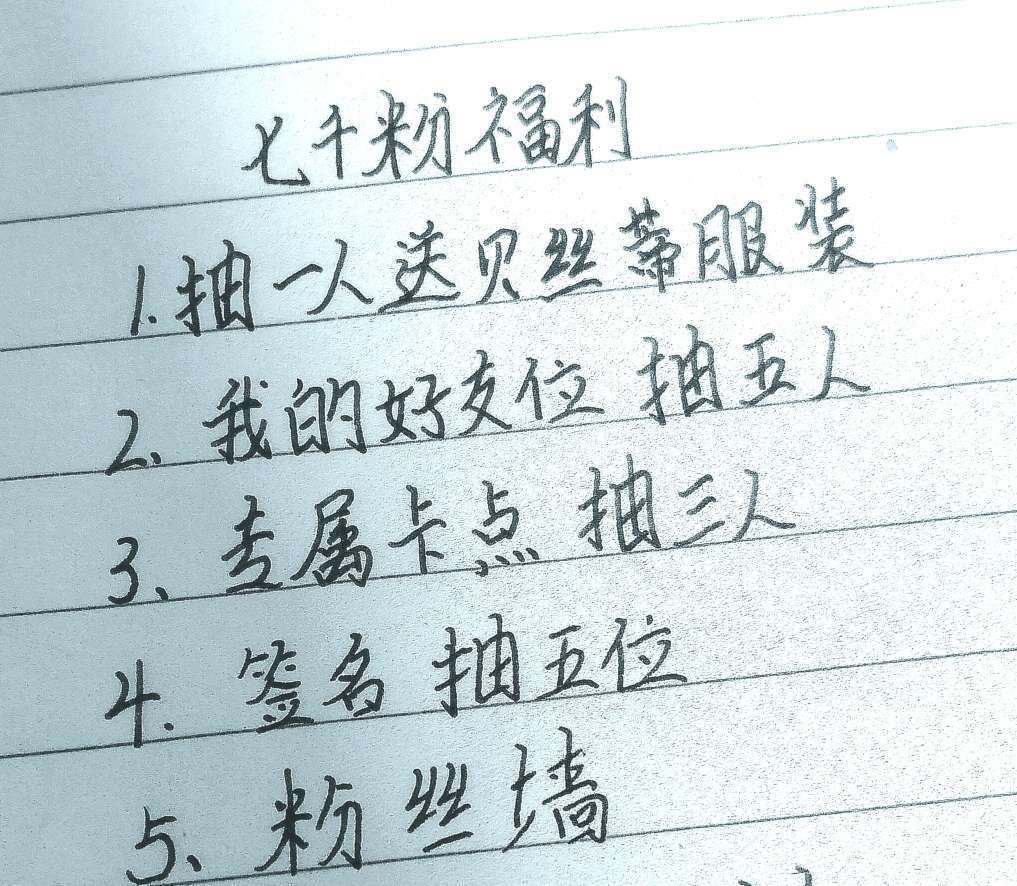 七千粉福利
1.抽一人送贝丝蒂服装
2、我的好友位 抽五人
3、专属卡点 抽三人
4. 签名 抽五位
5、粉丝墙